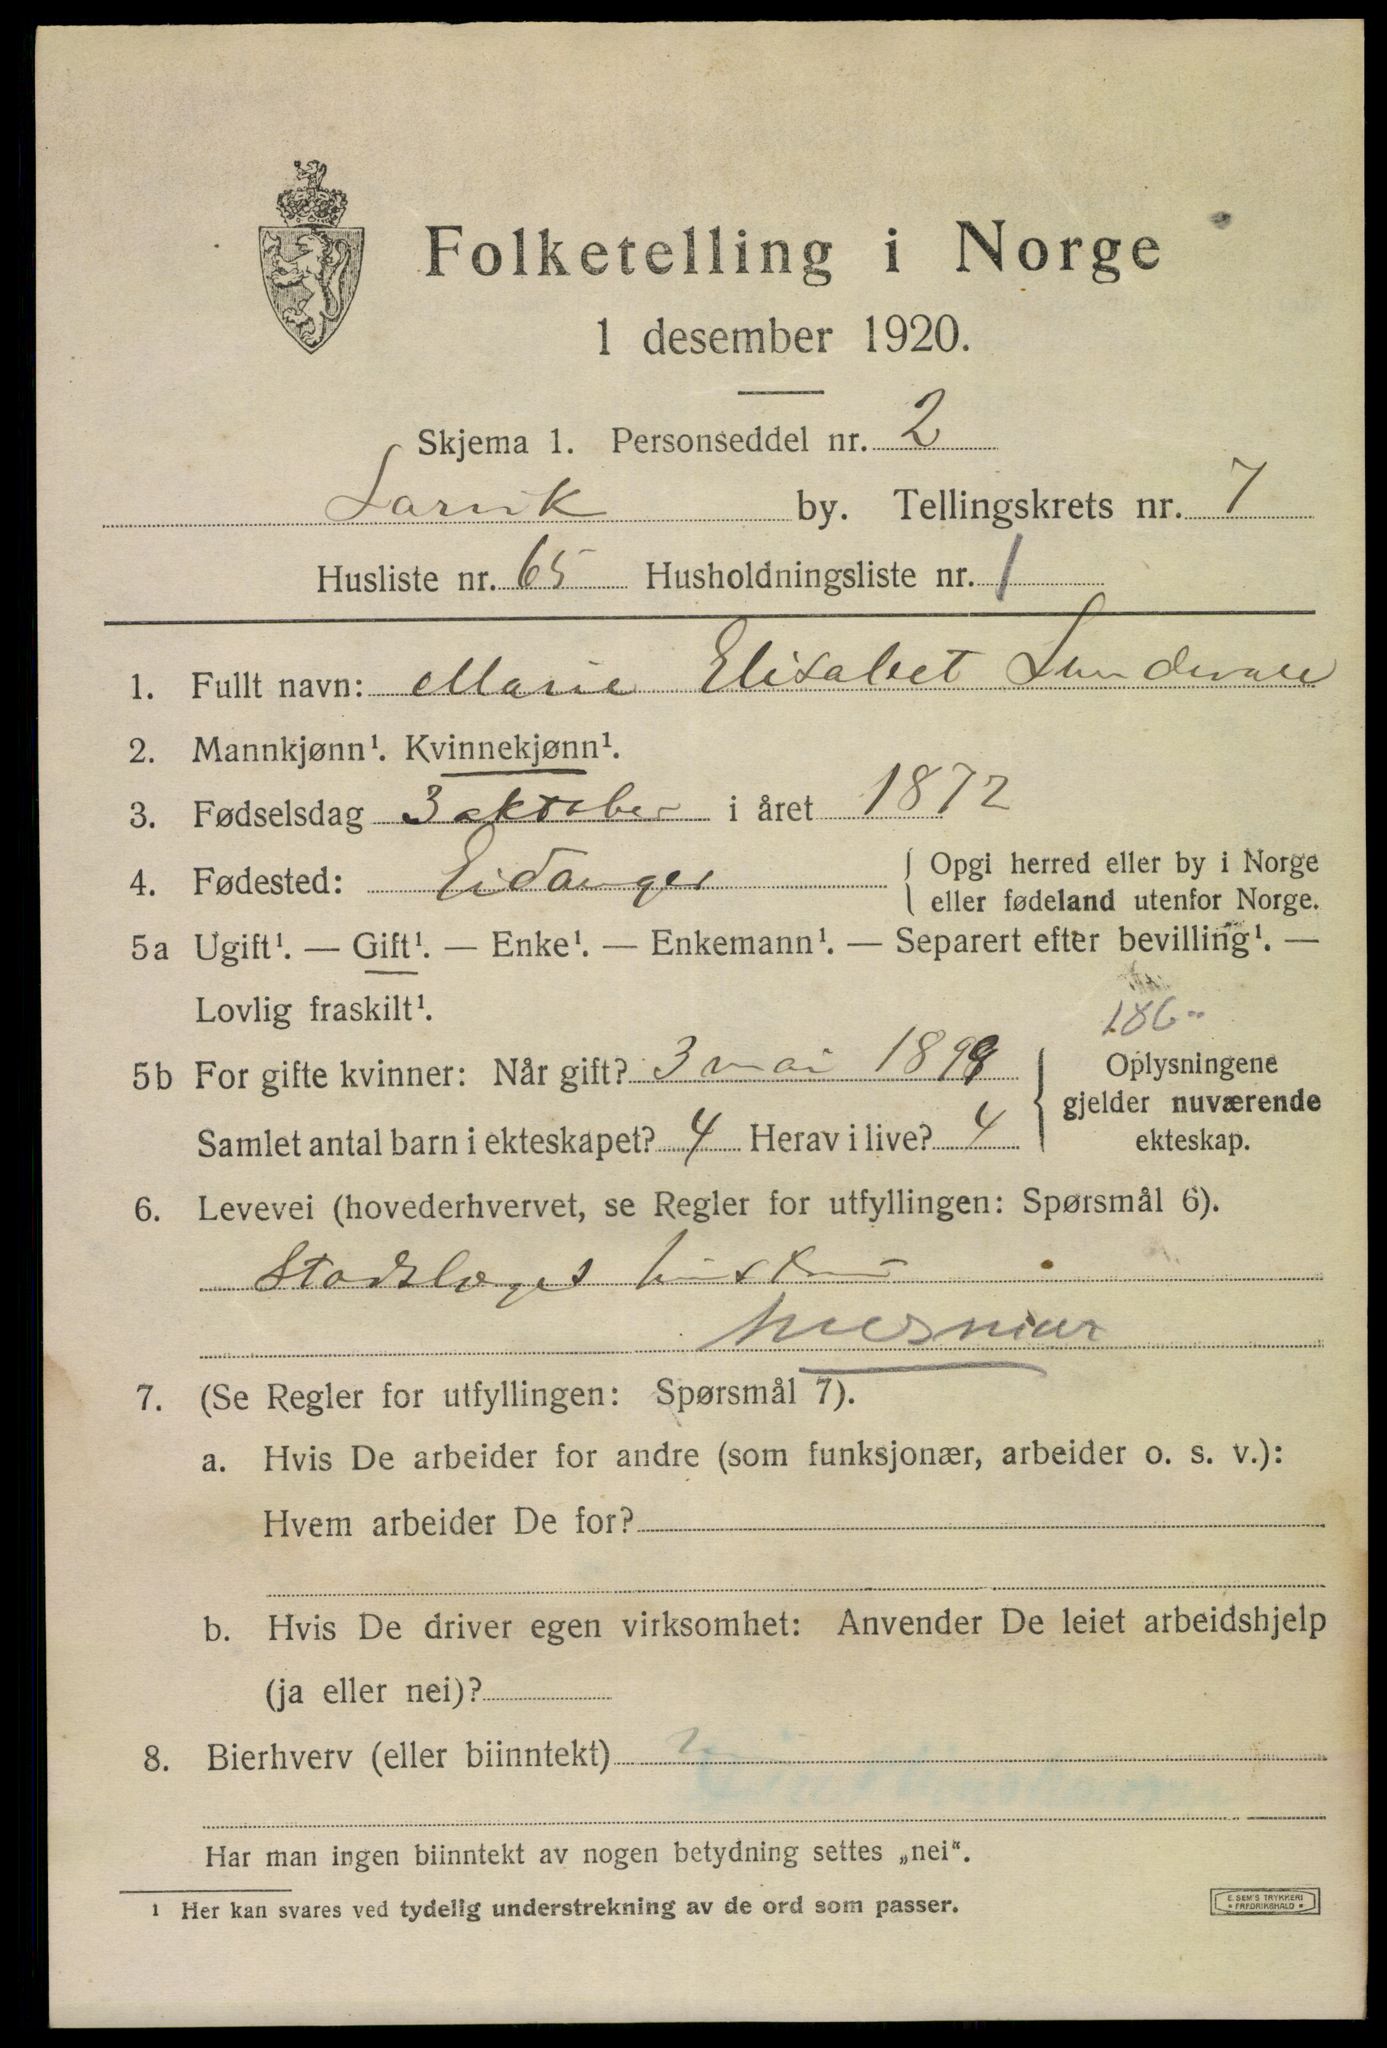 Folketelling i Norge
1 desember 1920.
Skjema 1. Personseddel nr. 2
Larvik by. Tellingskrets nr. 7
Husliste nr. 65 Husholdningsliste nr. 1
1. Fullt navn: Marie Elisabet Lundevall
2. Mannkjønn¹. Kvinnekjønn¹.
3. Fødselsdag 3 oktober i året 1872
4. Fødested: Eidanger { Opgi herred eller by i Norge
eller fødeland utenfor Norge.
5a Ugift¹. — Gift¹. — Enke¹. — Enkemann¹. — Separert efter bevilling¹. —
Lovlig fraskilt¹.
186
5b For gifte kvinner: Når gift? 3 mai 1899
Samlet antal barn i ekteskapet? 4 Herav i live? 4
Oplysningene
gjelder nuværende
ekteskap.
6. Levevei (hovederhvervet, se Regler for utfyllingen: Spørsmål 6).
Stadslæges hustru
husmor
7. (Se Regler for utfyllingen: Spørsmål 7).
a. Hvis De arbeider for andre (som funksjonær, arbeider o. s. v.):
Hvem arbeider De for?
b. Hvis De driver egen virksomhet: Anvender De leiet arbeidshjelp
(ja eller nei)?
8. Bierhverv (eller biinntekt)
Har man ingen biinntekt av nogen betydning settes „nei“.
¹ Her kan svares ved tydelig understrekning av de ord som passer.
E. SEM'S TRYKKERI
* FREDRIKSHALD *